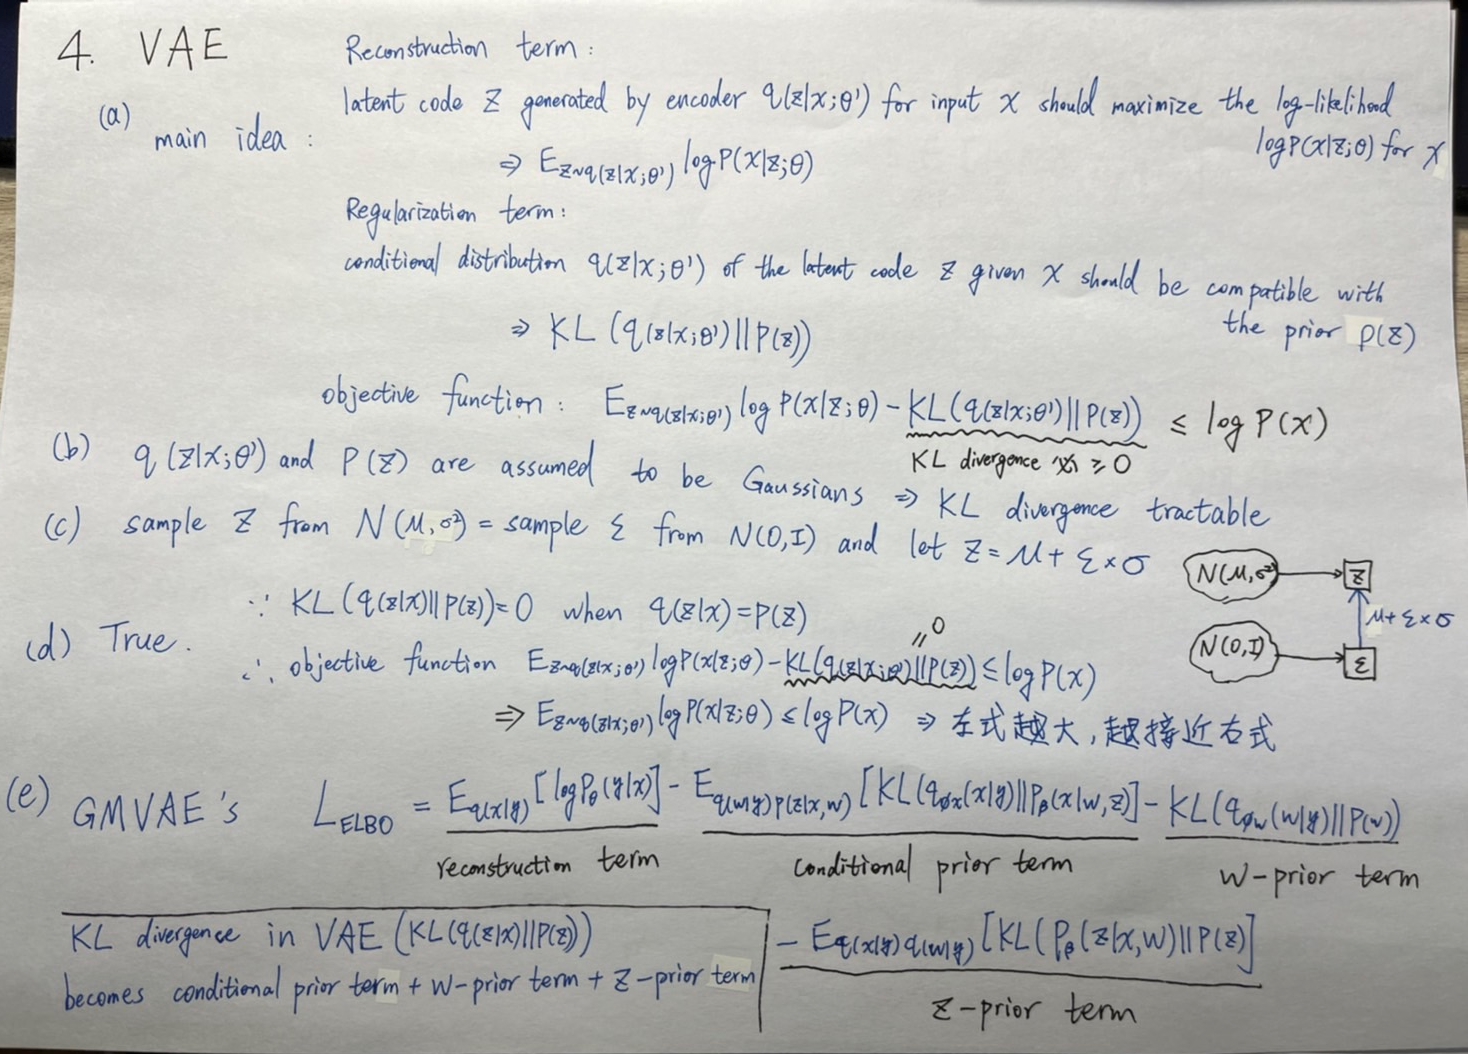 4. VAE
Reconstruction term:
(a) main idea: latent code z generated by encoder q(z|x;θ') for input x should maximize the log-likelihood
logP(x|z;θ) for x
⇒ E_{z~q(z|x;θ')} logP(x|z;θ)
Regularization term:
conditional distribution q(z|x;θ') of the latent code z given x should be compatible with
the prior p(z)
⇒ KL (q(z|x;θ')||P(z))
objective function: E_{z~q(z|x;θ')} log P(x|z;θ) - KL(q(z|x;θ')||P(z)) ≤ log P(x)
KL divergence ≥ 0
(b) q(z|x;θ') and P(z) are assumed to be Gaussians ⇒ KL divergence tractable
(c) sample z from N(μ,σ²) = sample ε from N(0,I) and let z = μ + ε×σ
N(μ,σ²) → z
μ+ε×σ
N(0,I) → ε
∵ KL(q(z|x)||P(z))=0 when q(z|x)=P(z)
(d) True.
∴ objective function E_{z~q(z|x;θ')} logP(x|z;θ) - KL(q(z|x;θ')||P(z)) ≤ logP(x)
=0
⇒ E_{z~q(z|x;θ')} logP(x|z;θ) ≤ logP(x) ⇒ 左式越大,越接近右式
(e) GMVAE's L_{ELBO} = E_{q(x|y)}[logP_θ(y|x)] - E_{q(w|y)p(z|x,w)}[KL(q_{φx}(x|y)||P_β(x|w,z)] - KL(q_{φw}(w|y)||P(w))
reconstruction term conditional prior term w-prior term
- E_{q(x|y)q(w|y)}[KL(P_β(z|x,w)||P(z)]
z-prior term
KL divergence in VAE (KL(q(z|x)||P(z))
becomes conditional prior term + w-prior term + z-prior term